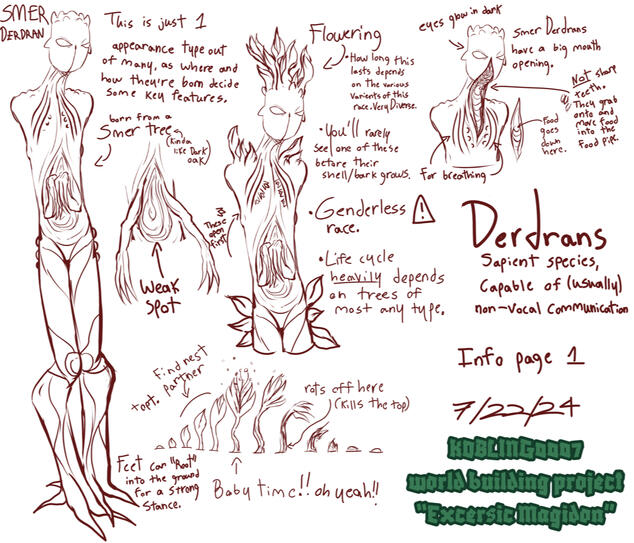 SMER
DERDRAN
This is just 1
appearance type out
of many, as where and
how they're born decide
some key features.
born from a
Smer tree
(Kinda
like Dark
oak)
Weak
spot
Feet can "Root"
into the ground
for a strong
stance.
Flowering
• How long this
lasts depends
on the various
varients of this
race. Very Diverse.
• You'll rarely
see one of these
before their
shell/bark grows.
• Genderless
race.
• Life cycle
heavily depends
on trees of
most any type.
These
open
first
Find nest
+opt. partner
rots off here
(Kills the top)
Baby time!! oh yeah!!
eyes glow in dark
Smer Derdrans
have a big mouth
opening.
Not sharp
teeth.
They grab
onto and
move food
into the
Food pipe.
Food
goes
down
here.
For breathing
Derdrans
Sapient species,
Capable of (usually)
non-vocal communication
Info page 1
7/22/24
world building project
"Excersic Magidon"